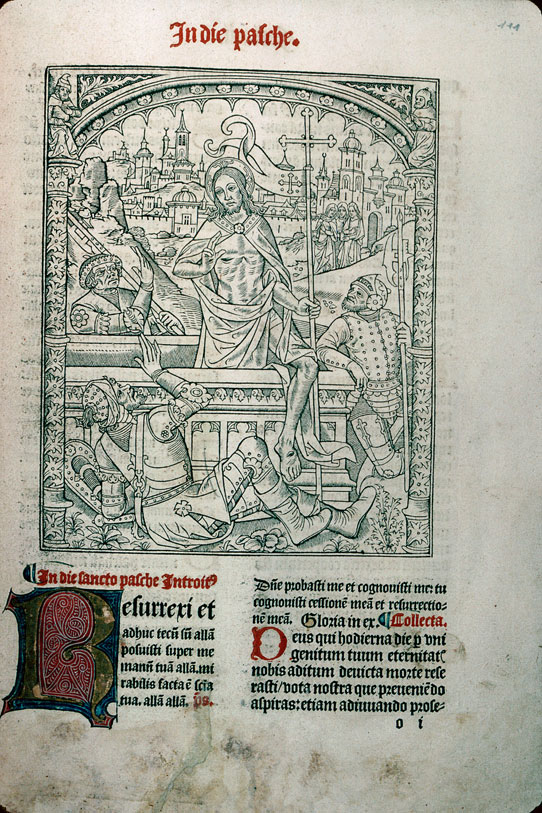 In die pasche.
111
¶In die sancto pasche Introitꝰ
Resurrexi et
adhuc tecū sū allā
posuisti super me
manū tuā allā. mi
rabilis facta ē sciā
tua. allā allā. ps.
Dn̄e probasti me et cognouisti me: tu
cognouisti cessionē meā et resurrectio-
nē meā. Gloria in ex. ¶Collecta.
Deus qui hodierna die ꝑ vni
genitum tuum eternitatꝭ
nobis aditum deuicta morte rese
rasti/vota nostra que preueniēdo
aspiras: etiam adiuuando prose-
o i